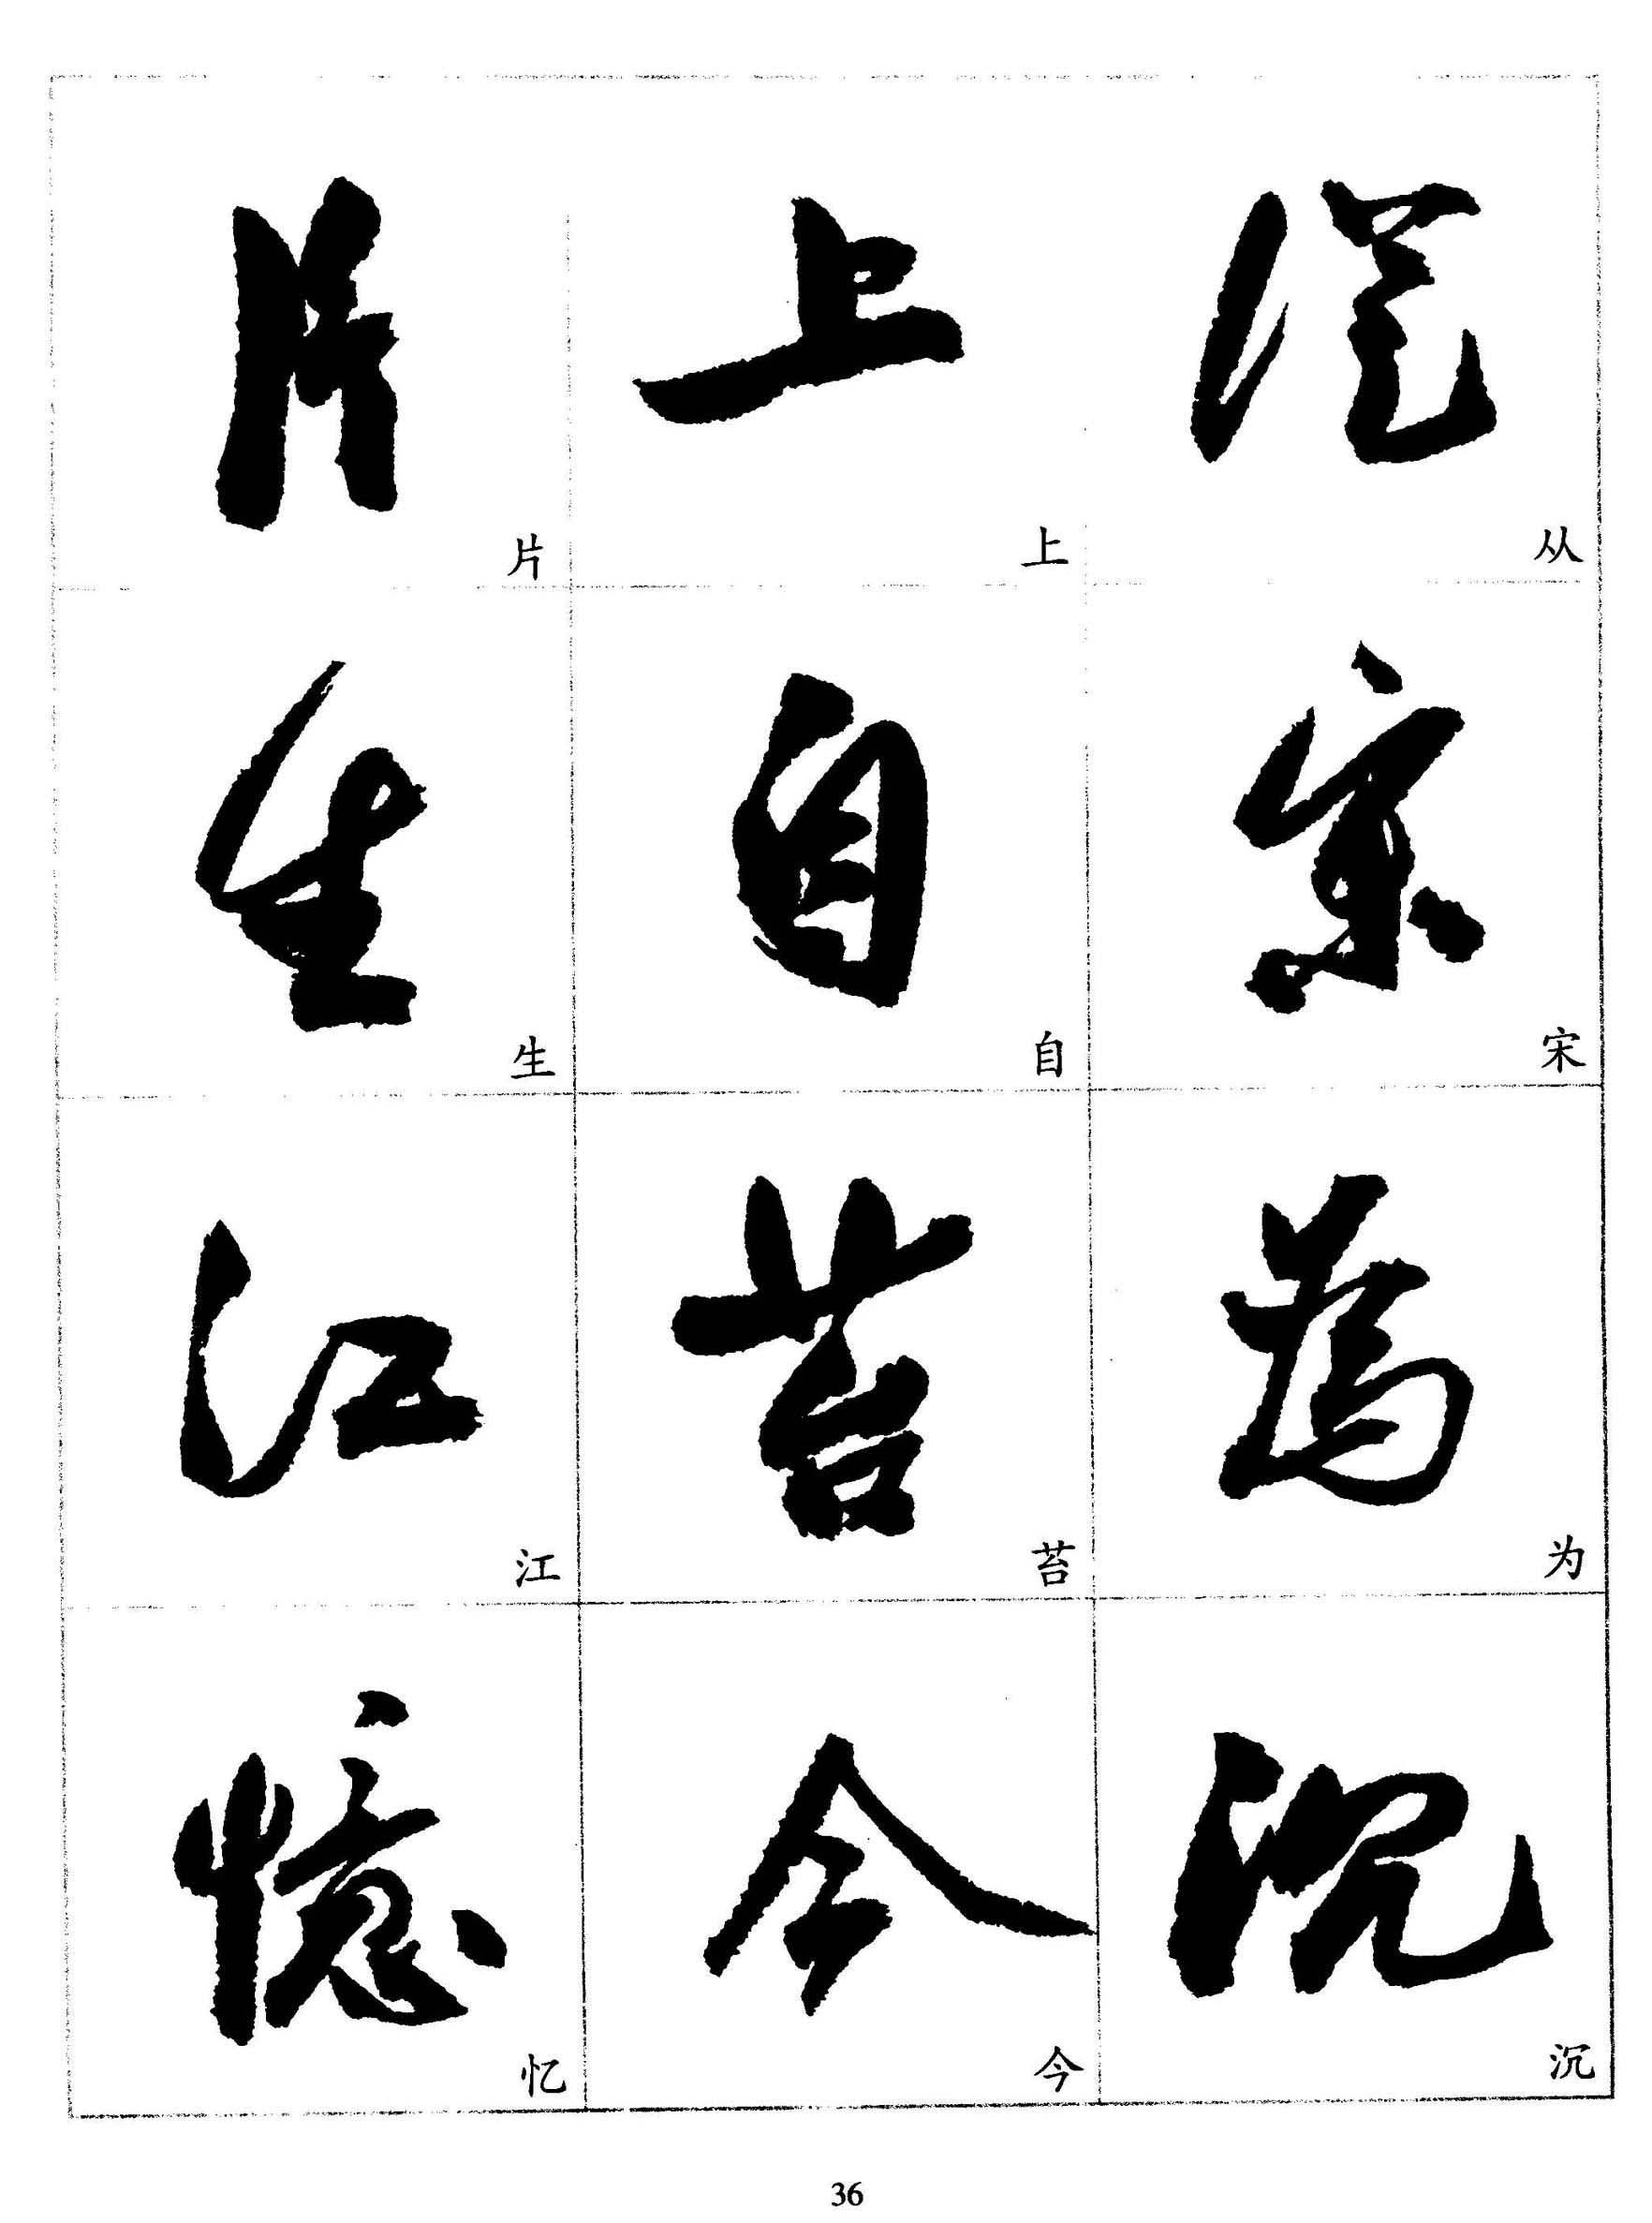 從
从
宋
宋
為
为
沉
沉
上
上
自
自
苔
苔
今
今
片
片
生
生
江
江
憶
忆
36